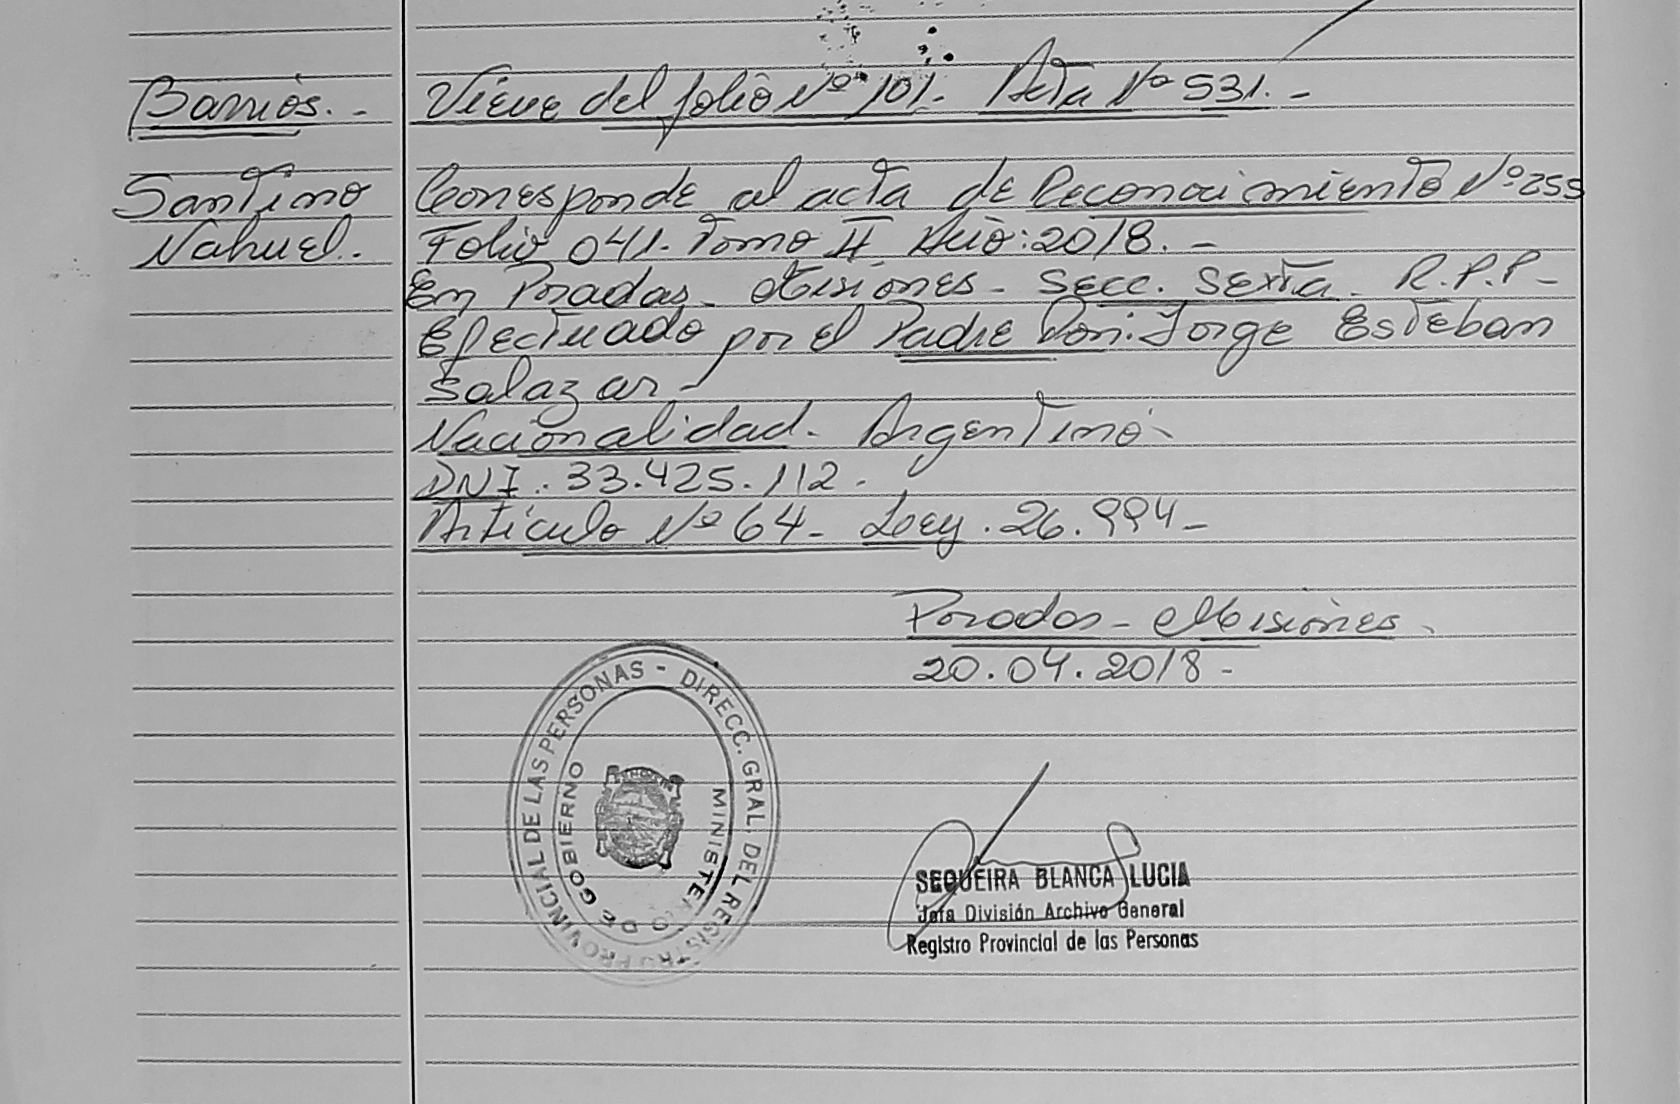 Barrios.-
Viene del folio Nº 101. Acta Nº 531.-
Santino
Nahuel.-
Corresponde al acta de Reconocimiento Nº 255
Folio 041. Tomo II Año: 2018.-
En Posadas - Misiones - Secc. Sexta. R.P.P-
Efectuado por el Padre Don: Jorge Esteban
Salazar-
Nacionalidad. Argentino-
DNI. 33.425.112.
Artículo Nº 64- Ley. 26.994-
Posadas - Misiones.
20.04.2018-
DIRECC. GRAL. DEL REGISTRO PROVINCIAL DE LAS PERSONAS -
MINISTERIO DE GOBIERNO
SEQUEIRA BLANCA LUCIA
Jefa División Archivo General
Registro Provincial de las Personas